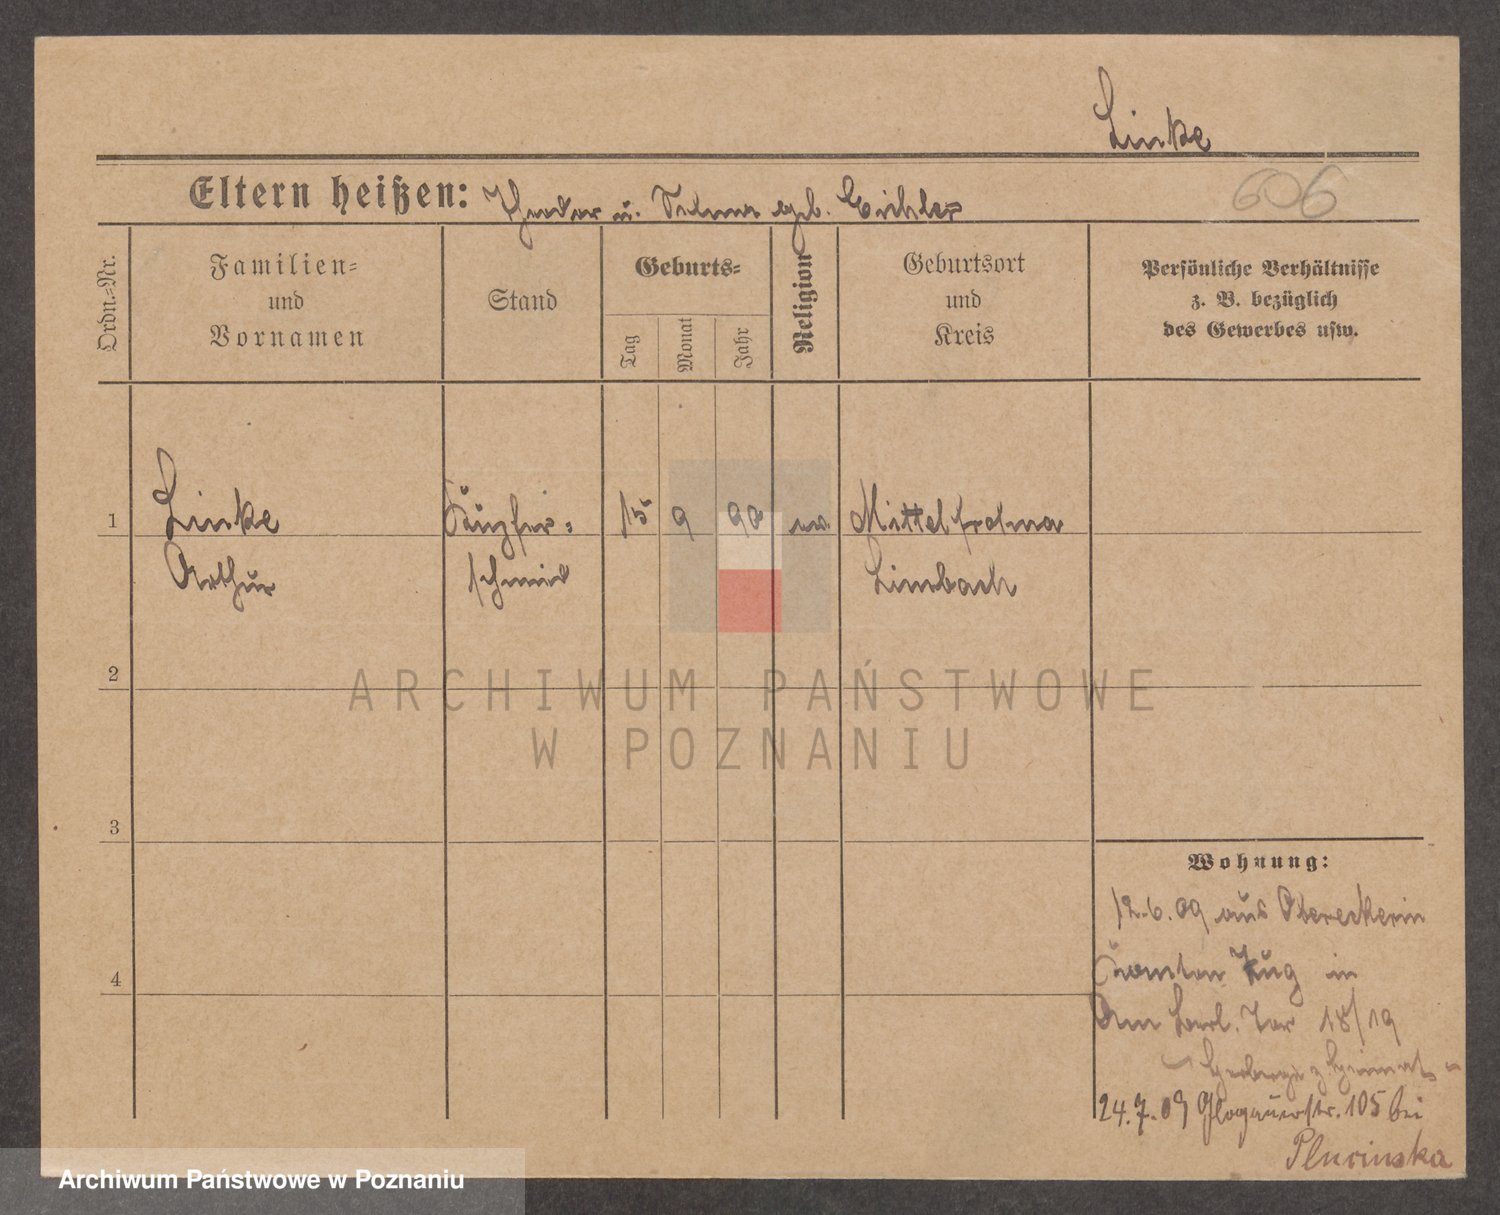 Linke
606
Eltern heißen: Theodor u. Selma geb. Eichler
Ordn.-Nr.
Familien-
und
Vornamen
Stand
Geburts-
Tag
Monat
Jahr
Religion
Geburtsort
und
Kreis
Persönliche Verhältnisse
z. B. bezüglich
des Gewerbes usw.
1
Linke
Arthur
Kupfer-
schmied
15
9
90
ev.
Mittelfrohna
Limbach
2
ARCHIWUM PAŃSTWOWE
W POZNANIU
3
4
Wohnung:
12.6.09 aus
Kanton Zug in
Am Berl. Tor 18/19
Herberge z. Heimat
24.7.09 Glogauerstr. 105 bei
Plucinska
Archiwum Państwowe w Poznaniu